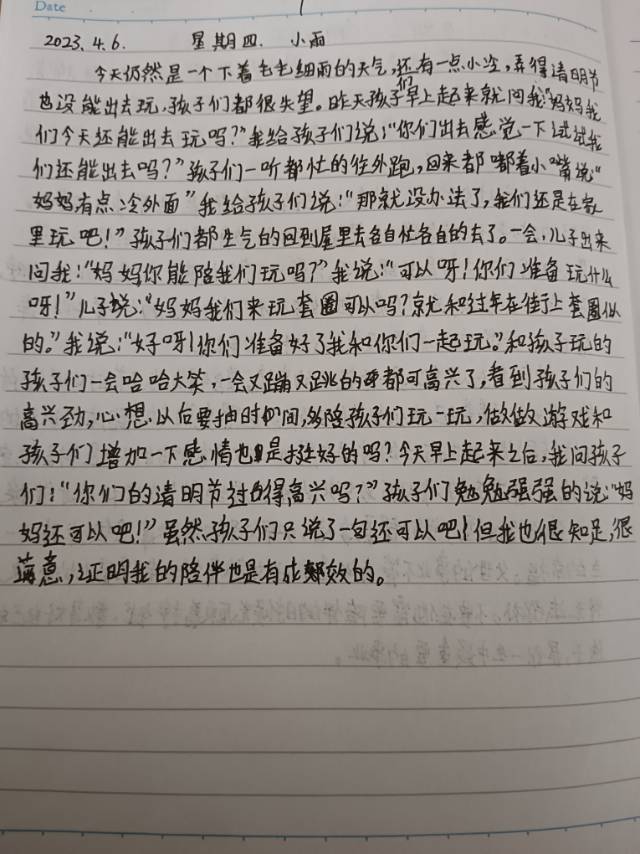 Date
2023.4.6. 星期四. 小雨
今天仍然是一个下着毛毛细雨的天气,还有一点小冷,弄得清明节
也没能出去玩,孩子们都很失望。昨天孩子们早上起来就问我:"妈妈我
们今天还能出去玩吗?"我给孩子们说:"你们出去感觉一下试试我
们还能出去吗?"孩子们一听都忙的往外跑,回来都嘟着小嘴说"
妈妈有点冷外面"我给孩子们说:"那就没办法了,我们还是在家
里玩吧!"孩子们都生气的回到屋里去各自忙各自的去了。一会,儿子出来
问我:"妈妈你能陪我们玩吗?"我说:"可以呀!你们准备玩什么
呀!"儿子说:"妈妈我们来玩套圈可以吗?就和过年在街上套圈似
的。"我说:"好呀!你们准备好了我和你们一起玩。"和孩子玩的
孩子们一会哈哈大笑,一会又蹦又跳的都可高兴了,看到孩子们的
高兴劲,心想以后要抽时间,多陪孩子们玩一玩,做做游戏和
孩子们增加一下感情也是挺好的吗?今天早上起来之后,我问孩子
们:"你们的清明节过得高兴吗?"孩子们勉勉强强的说:"妈
妈还可以吧!"虽然孩子们只说了一句还可以吧!但我也很知足,很
满意,证明我的陪伴也是有成效的。